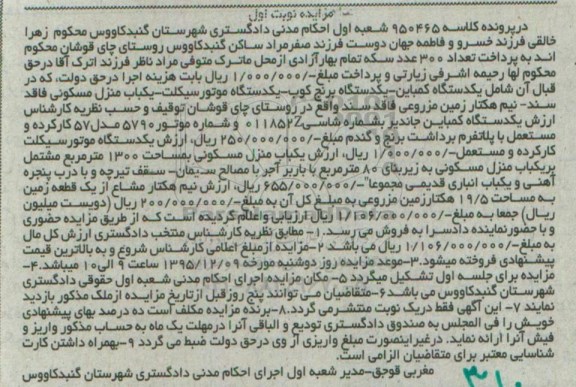 مزایده نوبت اول
درپرونده کلاسه ۹۵۰۴۶۵ شعبه اول احکام مدنی دادگستری شهرستان گنبدکاووس محکوم زهرا
خالقی فرزند خسرو و فاطمه جهان دوست فرزند صفرمراد ساکن گنبدکاووس روستای چای قوشان محکوم
اند به پرداخت تعداد ۳۰۰ عدد سکه تمام بهارآزادی ازمحل ماترک متوفی مراد ناظر فرزند اترک آقا درحق
محکوم لها رحیمه اشرفی زیارتی و پرداخت مبلغ-/۱/۰۰۰/۰۰۰ ریال بابت هزینه اجرا درحق دولت، که در
قبال آن شامل یکدستگاه کمباین-یکدستگاه برنج کوب-یکدستگاه موتورسیکلت-یکباب منزل مسکونی فاقد
سند- نیم هکتار زمین مزروعی فاقد سند واقع در روستای چای قوشان توقیف و حسب نظریه کارشناس
ارزش یکدستگاه کمباین جاندیر بشماره شاسی ۰۱۱۸۵۲Z و شماره موتور ۵۷۹۰ مدل ۵۷ کارکرده و
مستعمل با پلاتفرم برداشت برنج و گندم مبلغ-/۲۵۰/۰۰۰/۰۰۰ ریال، ارزش یکدستگاه موتورسیکلت
کارکرده و مستعمل-/۱/۰۰۰/۰۰۰ ریال، ارزش یکباب منزل مسکونی بمساحت ۱۳۰۰ مترمربع مشتمل
بریکباب منزل مسکونی به زیربنای ۸۰ مترمربع با باربر آجر با مصالح سیمان- سقف تیرچه و با درب پنجره
آهنی و یکباب انباری قدیمی مجموعا"-/۶۵۵/۰۰۰/۰۰۰ ریال، ارزش نیم هکتار مشاع از یک قطعه زمین
به مساحت ۱۹/۵ هکتارزمین مزروعی به مبلغ کل آن به مبلغ-/۲۰۰/۰۰۰/۰۰۰ ریال (دویست میلیون
ریال) جمعا به مبلغ-/۱/۱۰۶/۰۰۰/۰۰۰ ریال ارزیابی واعلام گردیده است که از طریق مزایده حضوری
و با حضورنماینده دادسرا به فروش می رسد. ۱- مطابق نظریه کارشناس منتخب دادگستری ارزش کل مال
به مبلغ-/۱/۱۰۶/۰۰۰/۰۰۰ ریال می باشد ۲-مزایده ازمبلغ اعلامی کارشناس شروع و به بالاترین قیمت
پیشنهادی فروخته میشود. ۳-موعد مزایده روز دوشنبه مورخه ۱۳۹۵/۱۲/۰۹ ساعت ۹ الی۱۰ میباشد. ۴-
مزایده برای جلسه اول تشکیل میگردد ۵-مکان مزایده اجرای احکام مدنی شعبه اول حقوقی دادگستری
شهرستان گنبدکاووس می باشد ۶-متقاضیان می توانند پنج روز قبل ازتاریخ مزایده ازملک مذکور بازدید
نمایند ۷- این آگهی فقط دریک نوبت منتشرمی گردد. ۸-برنده مزایده مکلف است ده درصد بهای پیشنهادی
خویش را فی المجلس به صندوق دادگستری تودیع و الباقی آنرا درمهلت یک ماه به حساب مذکور واریز و
فیش آنرا ارائه نماید. درغیراینصورت مبلغ واریزی از وی درحق دولت ضبط می گردد ۹-بهمراه داشتن کارت
شناسایی معتبر برای متقاضیان الزامی است.
مغربی قوجق-مدیر شعبه اول اجرای احکام مدنی دادگستری شهرستان گنبدکاووس
۳۱۰